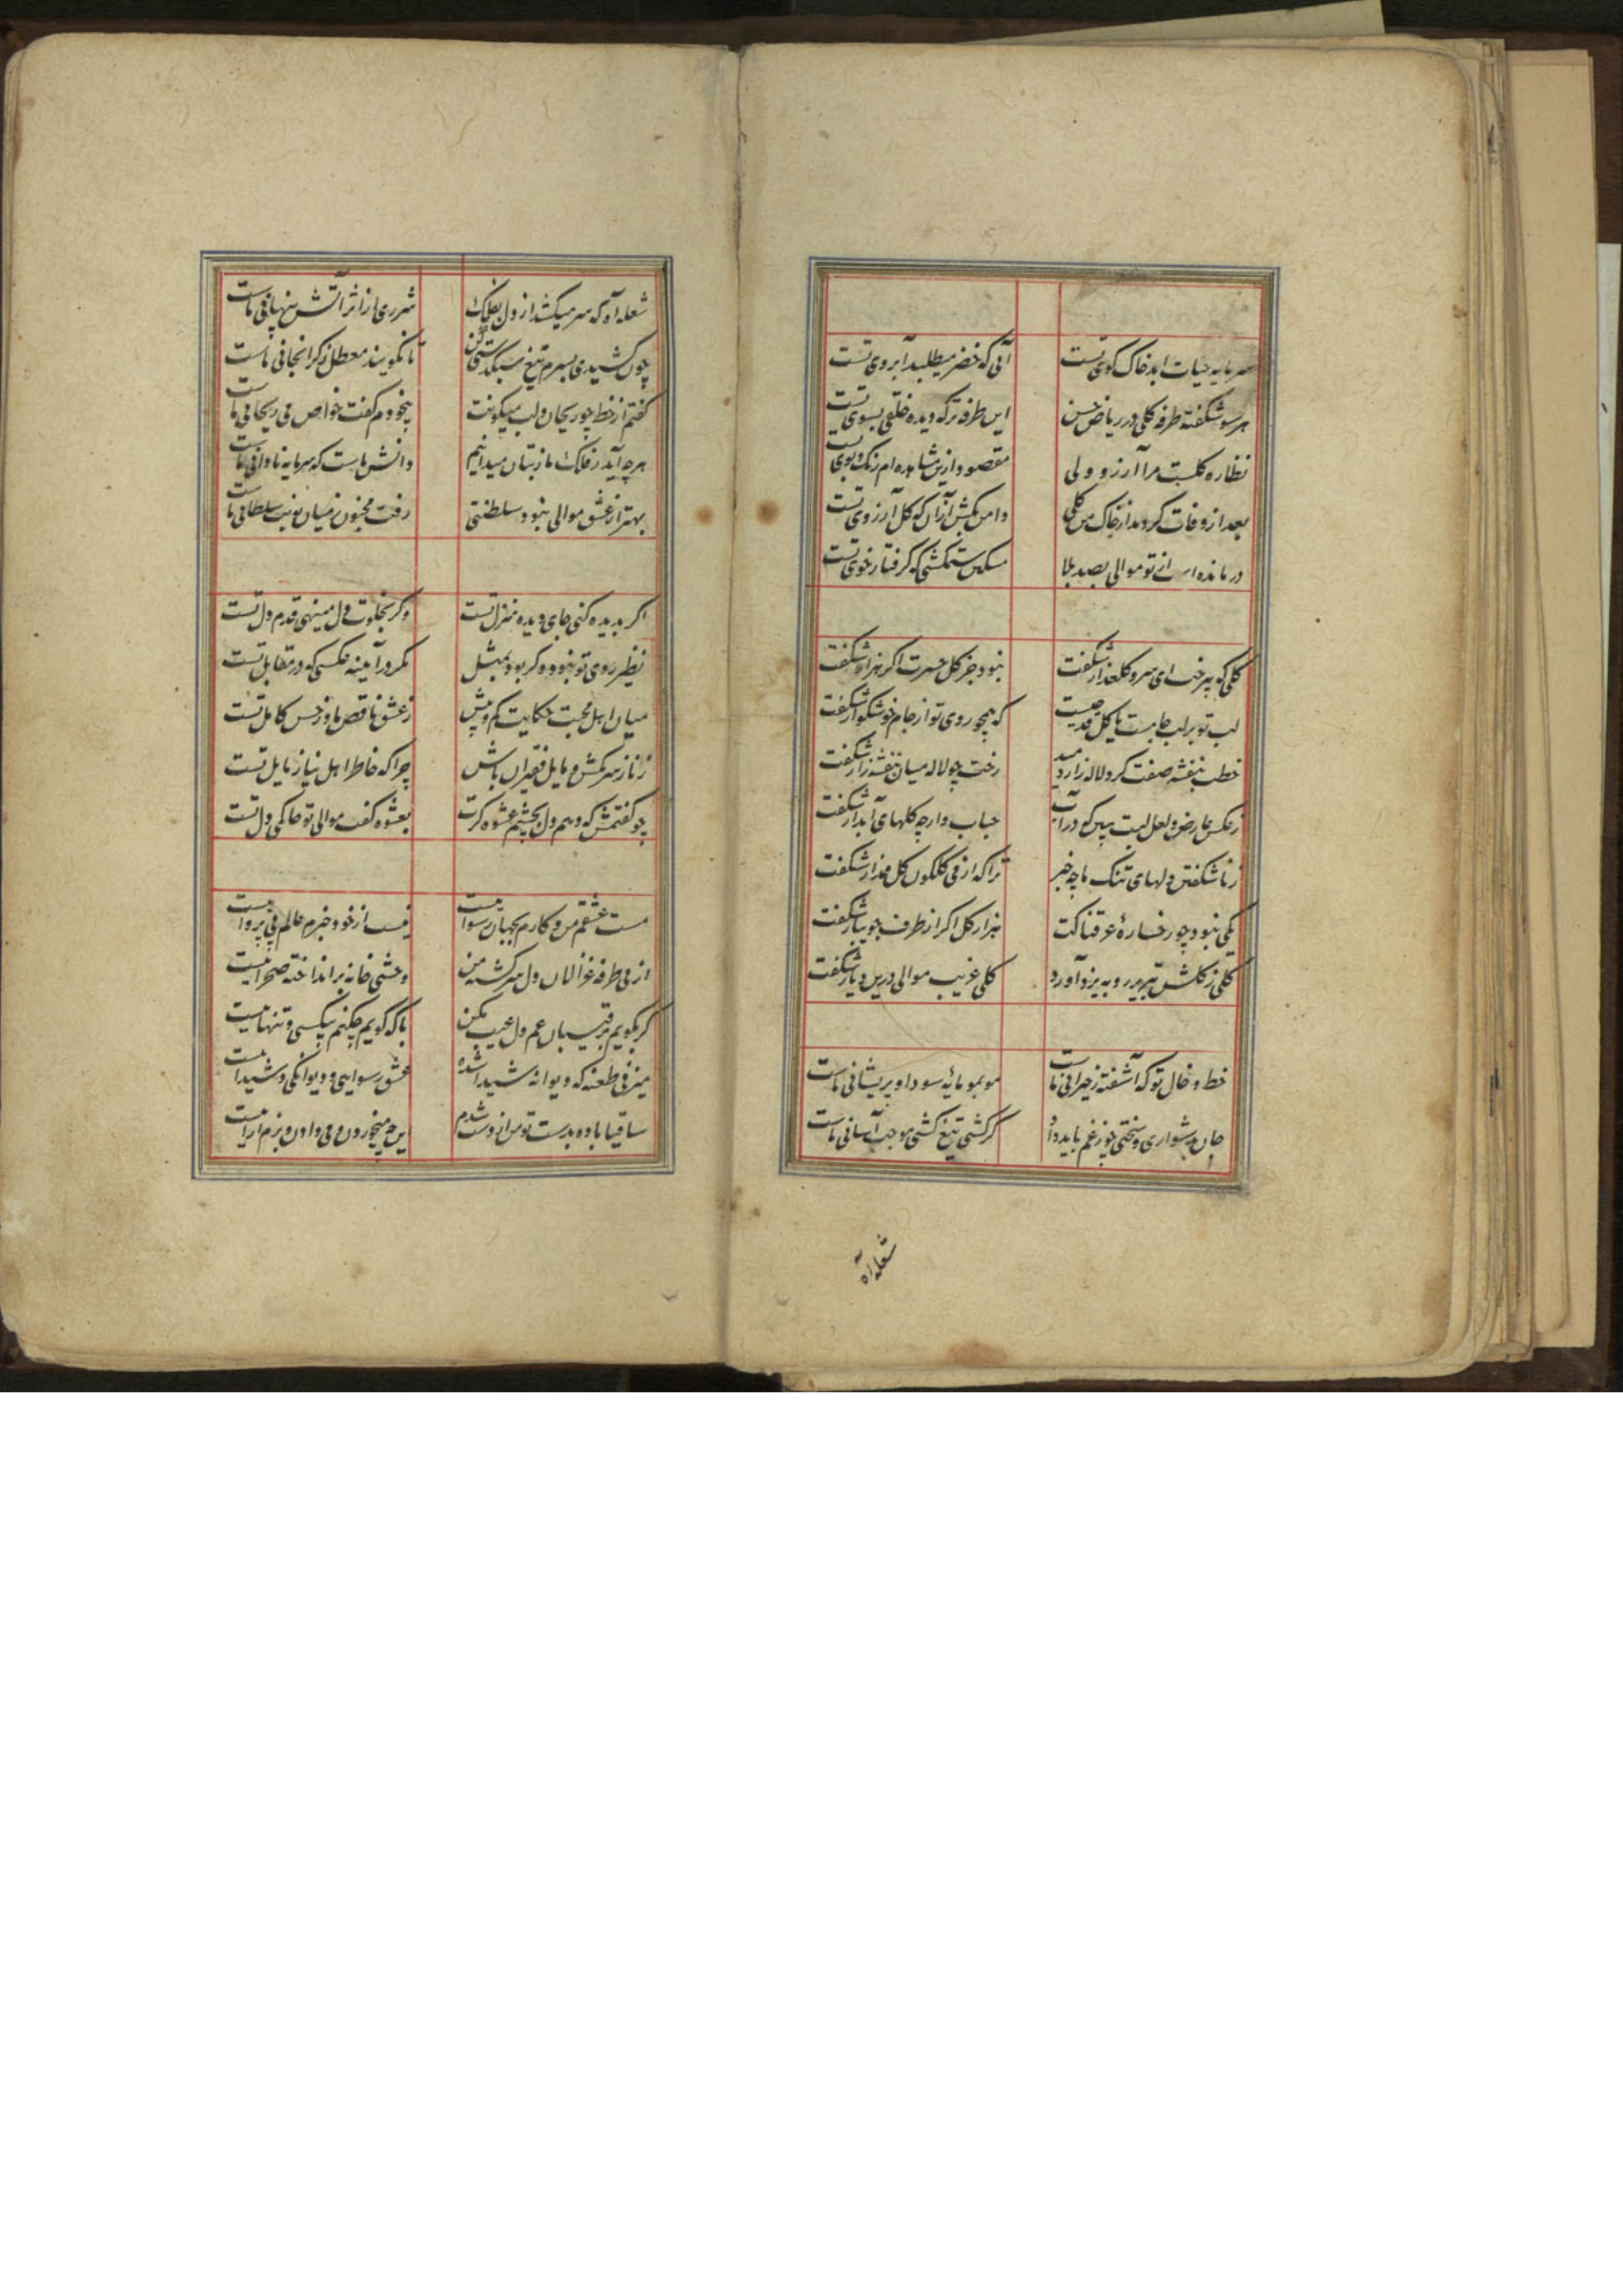 سرمایه حیات ابد خاک کوی تست
آبی که خضر میطلبد آبروی تست
هر سو شکفته طرفه گلی در ریاض حسن
این طرفه‌تر که دیده خلقی بسوی تست
نظاره گلست مرا آرزو ولی
مقصود ازین مشاهده‌ام رنگ و بوی تست
بعد از وفات گر دمد از خاک من گلی
دامن مکش از آن که گل آرزوی تست
درمانده از تو موالی بصد بلا
مسکین ستمکشی که گرفتار خوی تست
گلی که بیرخت ای سرو گلعذار شکفت
نبود جز گل حسرت اگر هزار شکفت
لب تو بر لب جامست یا گل
که همچو روی تو از جام خوشگوار شکفت
خطت بنفشه صفت گرد لاله زار دمید
رخت چو لاله میان بنفشه‌زار شکفت
ز عکس عارض و لعل لبت ببین که در آب
حباب وار چه گلهای آبدار شکفت
ز ناشکفتن دلهای تنگ ما چه خبر
ترا که از می گلگون گل عذار شکفت
یکی نبود چو رخساره عرقناکت
هزار گل اگر از طرف جویبار شکفت
گلی ز گلشن تبریز رو به یزد آورد
گلی غریب موالی درین دیار شکفت
خط و خال تو که آشفته ز حیرانی ماست
مو بمو مایه سودا و پریشانی ماست
جان بدشواری و سختی چو ز غم باید داد
گر کشی تیغ کشی موجب آسانی ماست
شعله آه
شعله آه که سر میکشد از دل بفلک
شرری از اثر آتش پنهانی ماست
چون کشیدی بسرم تیغ سبکدستی کن
تا نگویند معطل ز گرانجانی ماست
گفتم از خط چو ریحان و لب میگونت
بیخودم گفت خواص می ریحانی ماست
هر چه آید ز فلک ما ز بتان میدانیم
دانش ماست که سرمایه نادانی ماست
بهتر از عشق موالی نبود سلطنتی
رفت مجنون ز میان نوبت سلطانی ماست
اگر بدیده کنی جای دیده منزل تست
وگر بخلوت دل مینهی قدم دل تست
نظیر روی تو نبود وگر بود بمثل
مگر در آینه عکسی که در مقابل تست
میان اهل محبت حکایت کم و بیش
ز عشق ناقص ما و ز حسن کامل تست
ز ناز سرمکش و مایل فقیران باش
چرا که خاطر اهل نیاز مایل تست
چو گفتمش که دهم دل بچشم عشوه گرت
بعشوه گفت موالی تو حاکمی دل تست
مست عشقم من و کارم بجهان رسواییست
نیست از خود خبرم عالم بی پرواییست
از پی طرفه غزالان دل سرگشته من
وحشی خانه برانداخته صحراییست
گر بگویم برقیبان غم دل عیب مکن
با که گویم چکنم بیکسی و تنهاییست
میزنی طعنه که دیوانه و شیدا شده
عشق رسوایی و دیوانگی و شیداییست
ساقیا باده بدست تو من از دست شدم
این چه میخوردن و می دادن و بزم آراییست